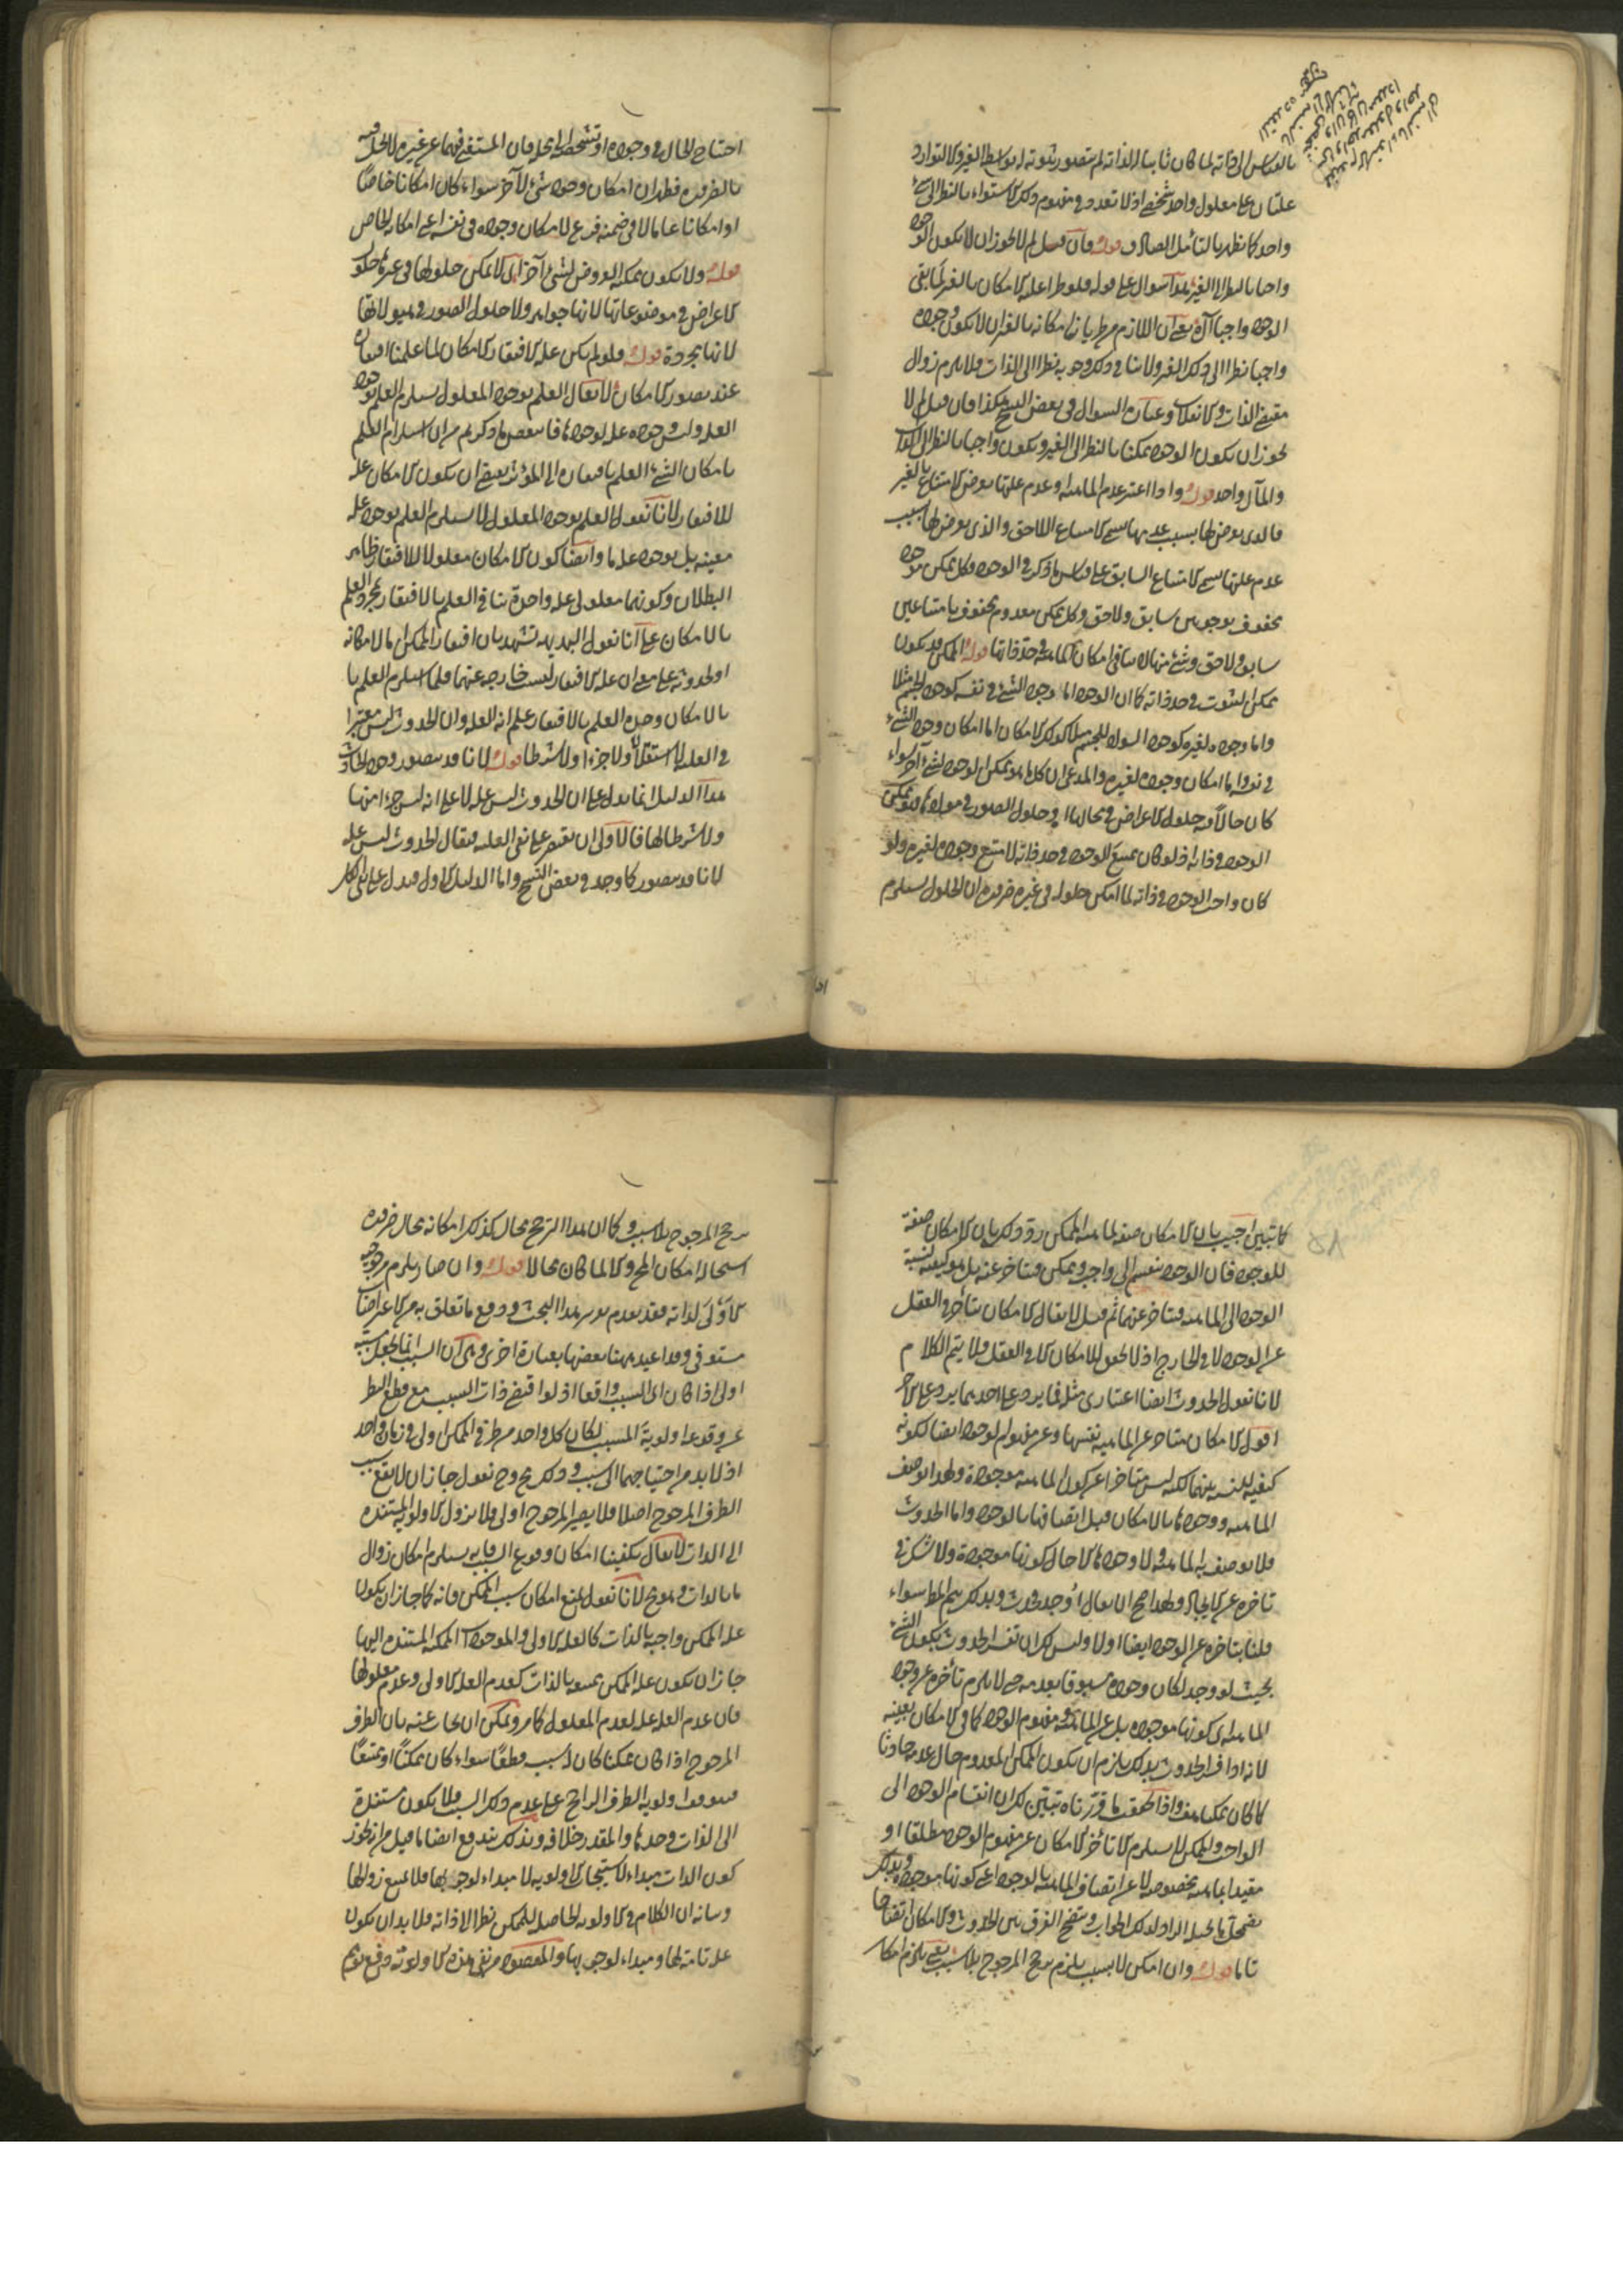 بالقياس الى ذاته لما كان ثابتا له لذاته لم يتصور ثبوته له بواسطة الغير والا لتوارد
علتان على معلول واحد شخصي اذ لا تعدد في مفهوم ذلك الاستواء بالنظر الى شيء
واحد كما يظهر بالتأمل الصادق قوله فان قيل لم لا يجوز ان لا يكون الوجود
واجبا بالنظر الى الغير هذا سوال على قوله فلو طرا عليه الامكان بالغير لما بقي
الوجود واجبا آه يعني ان اللازم من طريان امكانه بالغير ان لا يكون وجوده
واجبا نظرا الى ذلك الغير ولا ينافي ذلك وجوبه نظرا الى الذات فلا يلزم زوال
مقتضى الذات ولا انقلاب وعبارة السوال في بعض النسخ هكذا فان قيل لم لا
يجوز ان يكون الوجود ممكنا بالنظر الى الغير ويكون واجبا بالنظر الى الذات
والمآل واحد قوله واذا اعتبر عدم الماهية او عدم علتها يعرض الامتناع بالغير
فالذي يعرض لها بسبب عدمها يسمى الامتناع اللاحق والذي يعرض لها بسبب
عدم علتها يسمى الامتناع السابق على قياس ما ذكر في الوجود فكل ممكن موجود
محفوف بوجوبين سابق ولاحق وكل ممكن معدوم محفوف بامتناعين
سابق ولاحق وشيء منها لا ينافي امكان الماهية في حد ذاتها قوله الممكن قد يكون
ممكن الثبوت في حد ذاته كما ان الوجود اما وجود الشيء في نفسه كوجود الجسم مثلا
واما وجوده لغيره كوجود السواد للجسم مثلا كذلك الامكان اما امكان وجود الشيء
في نفسه واما امكان وجوده لغيره والمدعى ان كل ما هو ممكن الوجود لشيء آخر سواء
كان حالا فيه حلول الاعراض في محالها او حلول الصور في موادها فهو ممكن
الوجود في ذاته اذ لو كان ممتنع الوجود في حد ذاته لامتنع وجوده لغيره ولو
كان واجب الوجود في ذاته لما امكن حلوله في غيره ضرورة ان الحلول يستلزم
احتياج الحال في وجوده او تشخصه الى محل فان المستغني فيهما عن غيره لا يحل فيه
بالضرورة فظهر ان امكان وجود شيء لآخر سواء كان امكانا خاصا
او امكانا عاما لا في ضمنه فرع لامكان وجوده في نفسه اعني امكانه الخاص
قوله ولا يكون ممكن العروض لشيء آخر اي لا يمكن حلولها في غيرها حلول
الاعراض في موضوعاتها لانها جواهر ولا حلول الصور في هيولاتها
لانها مجردة قوله فلو لم يكن علة الافتقار الامكان لما علمنا افتقاره
عند تصور الامكان لا يقال العلم بوجود المعلول يستلزم العلم بوجود
العلة وليس وجوده علة لوجودها فانتقض ما ذكرتم من ان استلزام العلم
بامكان الشيء العلم بافتقاره الى المؤثر يقتضي ان يكون الامكان علة
للافتقار لانا نقول العلم بوجود المعلول لا يستلزم العلم بوجود علة
معينة بل بوجود علة ما وايضا كون الامكان معلولا للافتقار ظاهر
البطلان وكونهما معلولي علة واحدة ينافي العلم بالافتقار بمجرد العلم
بالامكان على انا نقول البديهة تشهد بان افتقار الممكن اما لامكانه
او لحدوثه على معنى ان علة الافتقار ليست خارجة عنهما فلما استلزم العلم
بالامكان وحده العلم بالافتقار علم انه العلة وان الحدوث ليس معتبرا
في العلة لا استقلالا ولا جزءا ولا شرطا قوله لانا قد نتصور وجود الحادث
هذا الدليل انما يدل على ان الحدوث ليس علة لا على انه ليس جزءا منها
ولا شرطا لها فالاولى ان يقتصر على نفي العلية فيقال الحدوث ليس علة
لانا قد نتصور كما وجد في بعض النسخ واما الدليل الاول فيدل على نفي الكل
كما تبين اجيب بان الامكان صفة لماهية الممكن ورد ذلك بان الامكان صفة
للوجود فان الوجود ينقسم الى واجب وممكن فيتأخر عنه بل هو كيفية لنسبة
الوجود الى الماهية فيتأخر عنهما ثم قيل لا يقال الامكان يتأخر في العقل
عن الوجود لا في الخارج اذ لا تحقق للامكان الا في العقل فلا يتم الكلام
لانا نقول الحدوث ايضا اعتباري مثله فما يرد على احدهما يرد على الآخر
اقول الامكان متأخر عن الماهية نفسها وعن مفهوم الوجود ايضا لكونه
كيفية للنسبة بينهما لكنه ليس متأخرا عن كون الماهية موجودة ولهذا يوصف
الماهية ووجودها بالامكان قبل اتصافها بالوجود واما الحدوث
فلا يوصف به الماهية ولا وجودها الا حال كونها موجودة ولا شك في
تأخره عن الايجاد ولهذا صح ان يقال أوجد فحدث وبذلك يتم المط سواء
قلنا بتأخره عن الوجود ايضا او لا وليس لك ان تفسر الحدوث بكون الشيء
بحيث لو وجد لكان وجوده مسبوقا بعدمه حتى لا يلزم تأخره عن وجود
الماهية اي كونها موجودة بل عن الماهية ومفهوم الوجود كما في الامكان بعينه
لانه اذا فسر الحدوث بذلك يلزم ان يكون الممكن المعدوم حال عدمه حادثا
كما كان ممكنا هف واذا تحققت ما قررناه تبين لك ان انقسام الوجود الى
الواجب والممكن لا يستلزم الا تأخر الامكان عن مفهوم الوجود مطلقا او
مقيدا بماهية مخصوصة لا عن اتصاف الماهية بالوجود اعني كونها موجودة وبذلك
يضمحل ما تخيله الراد لذلك الجواب ويتضح الفرق بين الحدوث والامكان اتضاحا
تاما قوله وان امكن لا بسبب يلزم ترجح المرجوح بلا سبب يعني يلزم امكان
ترجح المرجوح بلا سبب وكما ان هذا الترجح محال كذلك امكانه محال ضرورة
استحالة امكان المح والا لما كان محالا قوله وان صار يلزم مرجوحية
الاولى لذاته فقد تقدم تقرير هذا البحث ودفع ما تعلق به من الاعتراضات
مستوفى وقد اعيد ههنا بعضها بعبارة اخرى وهي ان السبب انما يجعل مسببه
اولى اذا كان ذلك السبب واقعا اذ لو اقتضى ذات السبب مع قطع النظر
عن وقوعه اولوية المسبب لكان كل واحد من طرفي الممكن اولى في زمان واحد
اذ لا بد من احتياجهما الى سبب وذلك مح وح نقول جاز ان لا يقع سبب
الطرف المرجوح اصلا فلا يصير المرجوح اولى فلا يزول الاولوية المستندة
الى الذات لا يقال يكفينا امكان وقوع السبب فانه يستلزم امكان زوال
ما بالذات وهو مح لانا نقول نمنع امكان سبب الممكن فانه كما جاز ان يكون
علة الممكن واجبة بالذات كالعلة الاولى والموجودات الممكنة المستندة اليها
جاز ان يكون علة الممكن ممتنعة بالذات كعدم العلة الاولى وعدم معلولها
فان عدم العلة علة لعدم المعلول كما مر ويمكن ان يجاب عنه بان الطرف
المرجوح اذا كان ممكنا كان له سبب قطعا سواء كان ممكنا او ممتنعا
فيتوقف اولوية الطرف الراجح على عدم ذلك السبب فلا يكون مستندة
الى الذات وحدها والمقدر خلافه وبذلك يندفع ايضا ما قيل من انه يجوز
كون الذات مبدأ لاستيجاب الاولوية لا مبدأ لوجوبها فلا يمتنع زوالها
وبيانه ان الكلام في الاولوية الحاصلة للممكن نظرا الى ذاته فلا بد ان يكون
علة تامة لها ومبدأ لوجوبها والمقصود من نفي هذه الاولوية دفع توهم